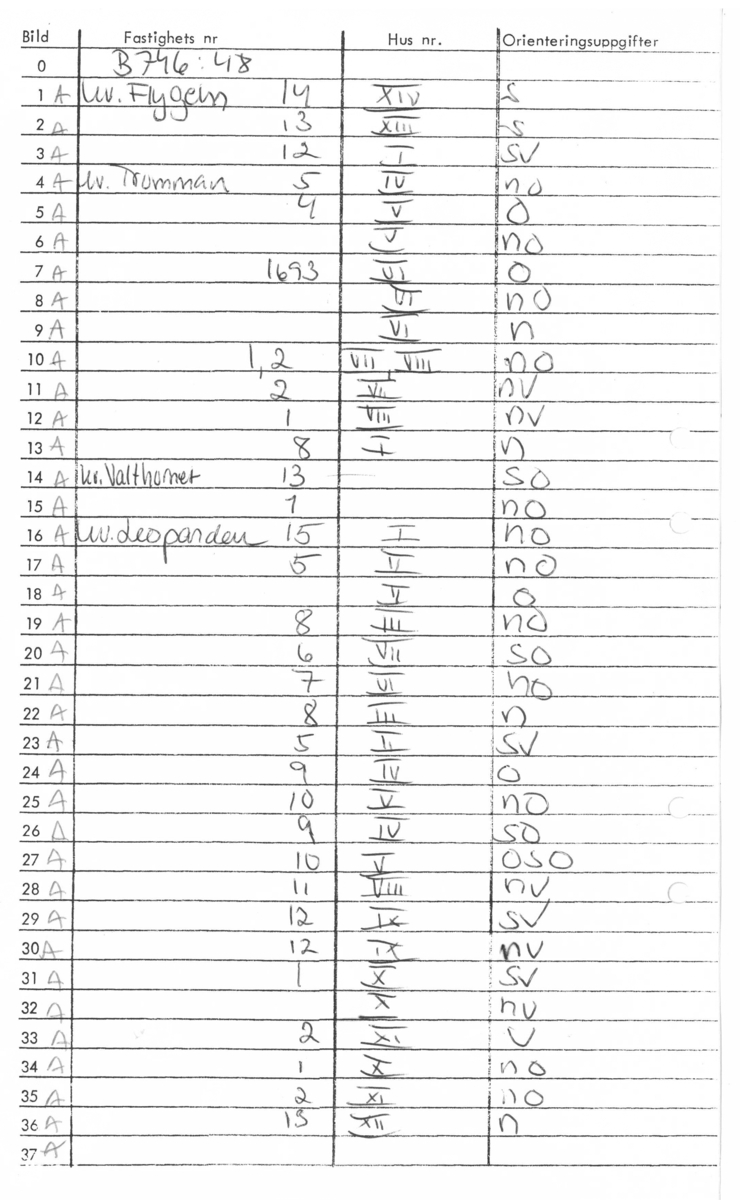 Bild Fastighets nr Hus nr. Orienteringsuppgifter
0 B746:48
1 A kv. Flygeln 14 XIV S
2 A 13 XIII S
3 A 12 I SV
4 A kv. Trumman 5 IV no
5 A 4 V O
6 A V no
7 A 1693 VI O
8 A VI no
9 A VI n
10 A 1, 2 VII VIII no
11 A 2 VII nv
12 A 1 VIII nv
13 A 8 n
14 A kv. Valthornet 13 SO
15 A 1 no
16 A kv. Leoparden 15 I no
17 A 5 no
18 A O
19 A 8 III no
20 A 6 VII SO
21 A 7 VI no
22 A 8 III n
23 A 5 SV
24 A 9 IV O
25 A 10 V no
26 A 9 IV SO
27 A 10 V OSO
28 A 11 VIII nv
29 A 12 IX SV
30 A 12 IX nv
31 A 1 X SV
32 A X nv
33 A 2 XI V
34 A 1 X no
35 A 2 XI no
36 A 13 XII n
37 A